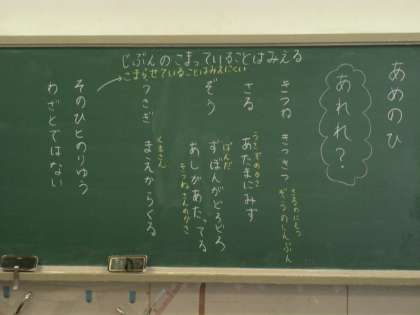 じぶんのこまっていることはみえる
こまらせていることはみえにくい
あめのひ
あれれ？
きつね　きつつき
さるのにもつ
ぞうのしんぶん
さる　あたまにみず
うさぎのかさ
ぞう　ずぼんがどろどろ
ぱんだ
あしがあたってる
きつねさんのかさ
うさぎ　まえからくる
くまさん
そのひとのりゆう
わざとではない